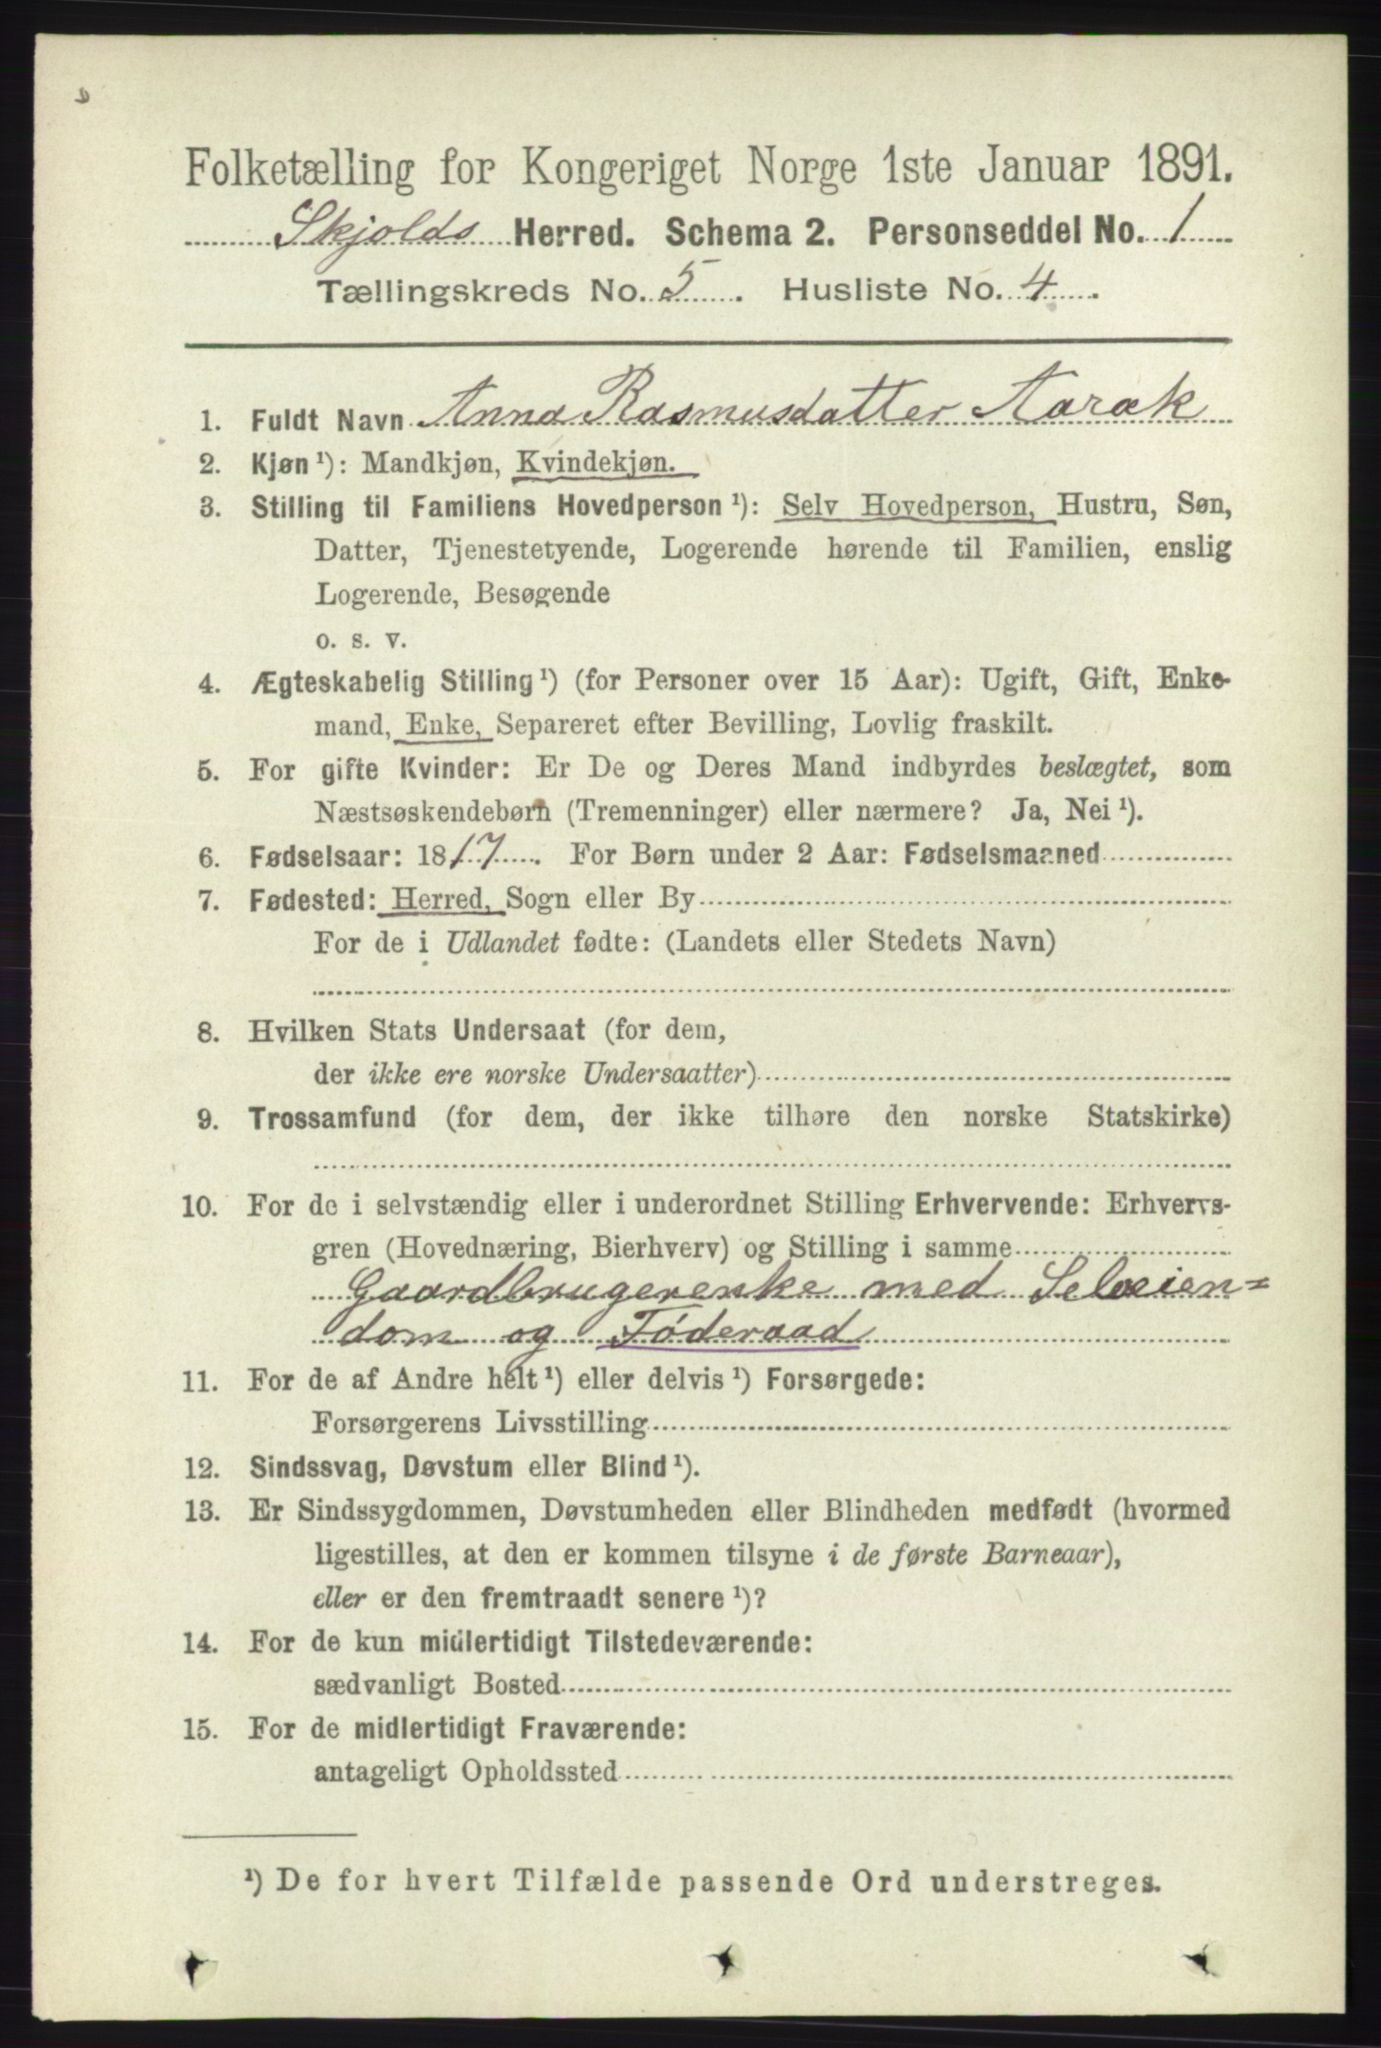 Folketælling for Kongeriget Norge 1ste Januar 1891.
Skjolds Herred. Schema 2. Personseddel No. 1
Tællingskreds No. 5. Husliste No. 4.
1. Fuldt Navn Anna Rasmusdatter Aarak
2. Kjøn ¹): Mandkjøn, Kvindekjøn.
3. Stilling til Familiens Hovedperson ¹): Selv Hovedperson, Hustru, Søn,
Datter, Tjenestetyende, Logerende hørende til Familien, enslig
Logerende, Besøgende
o. s. v.
4. Ægteskabelig Stilling ¹) (for Personer over 15 Aar): Ugift, Gift, Enke-
mand, Enke, Separeret efter Bevilling, Lovlig fraskilt.
5. For gifte Kvinder: Er De og Deres Mand indbyrdes beslægtet, som
Næstsøskendebørn (Tremenninger) eller nærmere? Ja, Nei ¹).
6. Fødselsaar: 1817. For Børn under 2 Aar: Fødselsmaaned
7. Fødested: Herred, Sogn eller By
For de i Udlandet fødte: (Landets eller Stedets Navn)
8. Hvilken Stats Undersaat (for dem,
der ikke ere norske Undersaatter)
9. Trossamfund (for dem, der ikke tilhøre den norske Statskirke)
10. For de i selvstændig eller i underordnet Stilling Erhvervende: Erhvervs-
gren (Hovednæring, Bierhverv) og Stilling i samme
Gaardbrugerenke med Selveien=
dom og Føderaad
11. For de af Andre helt ¹) eller delvis ¹) Forsørgede:
Forsørgerens Livsstilling
12. Sindssvag, Døvstum eller Blind ¹).
13. Er Sindssygdommen, Døvstumheden eller Blindheden medfødt (hvormed
ligestilles, at den er kommen tilsyne i de første Barneaar),
eller er den fremtraadt senere ¹)?
14. For de kun midlertidigt Tilstedeværende:
sædvanligt Bosted
15. For de midlertidigt Fraværende:
antageligt Opholdssted
¹) De for hvert Tilfælde passende Ord understreges.